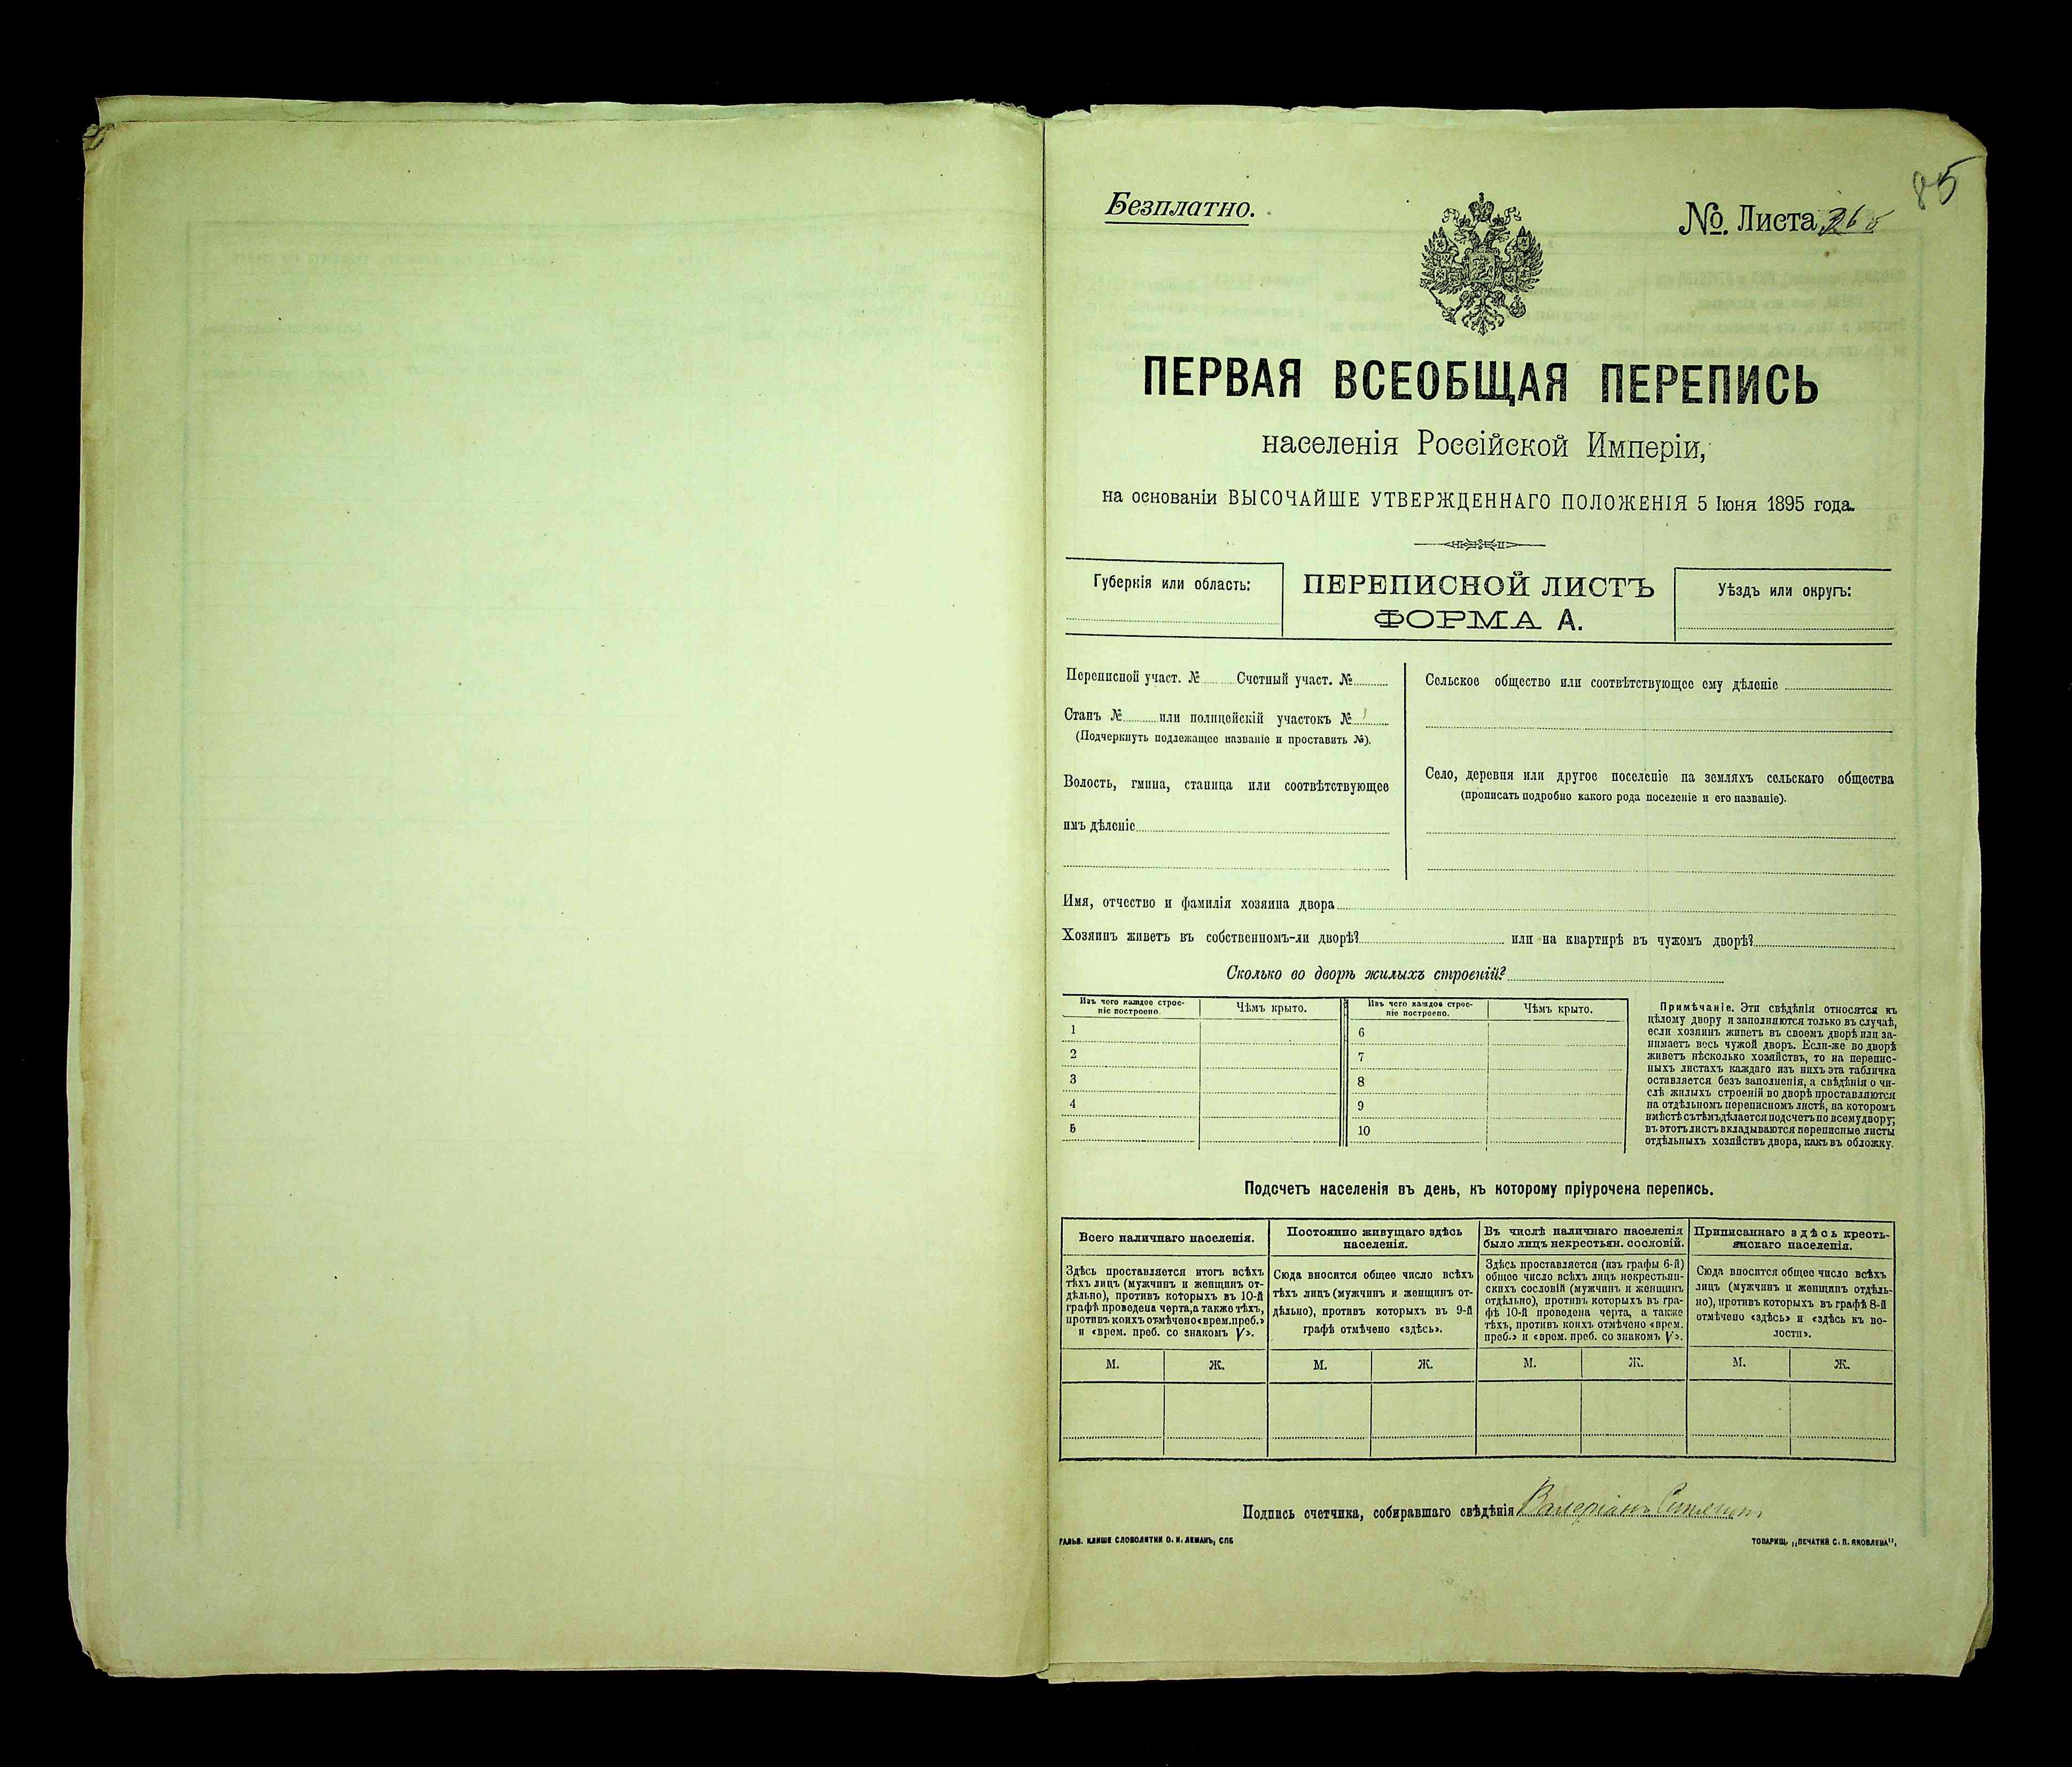 85
Безплатно.
№. Листа
ПЕРВАЯ ВСЕОБЩАЯ ПЕРЕПИСЬ
населенія Россійской Имперіи,
на основаніи ВЫСОЧАЙШЕ УТВЕРЖДЕННАГО ПОЛОЖЕНІЯ 5 Іюня 1895 года.
Губернія или область:
ПЕРЕПИСНОЙ ЛИСТЪ
ФОРМА А.
Уѣздъ или округъ:
Переписной участ. № Счетный участ. №
Станъ № или полицейскій участокъ №
(Подчеркнуть подлежащее названіе и проставить №).
Волость, гмина, станица или соотвѣтствующее
имъ дѣленіе
Сельское общество или соотвѣтствующее ему дѣленіе
Село, деревня или другое поселеніе на земляхъ сельскаго общества
(прописать подробно какого рода поселеніе и его названіе).
Имя, отчество и фамилія хозяина двора
Хозяинъ живетъ въ собственномъ-ли дворѣ? или на квартирѣ въ чужомъ дворѣ?
Сколько во дворѣ жилыхъ строеній?
Изъ чего каждое строе-
ніе построено.
Чѣмъ крыто.
1
2
3
4
5
Изъ чего каждое строе-
ніе построено.
Чѣмъ крыто.
6
7
8
9
10
Примѣчаніе. Эти свѣдѣнія относятся къ
цѣлому двору и заполняются только въ случаѣ,
если хозяинъ живетъ въ своемъ дворѣ или за-
нимаетъ весь чужой дворъ. Если-же во дворѣ
живетъ нѣсколько хозяйствъ, то на перепис-
ныхъ листахъ каждаго изъ нихъ эта табличка
оставляется безъ заполненія, а свѣдѣнія о чи-
слѣ жилыхъ строеній во дворѣ проставляются
на отдѣльномъ переписномъ листѣ, на которомъ
вмѣстѣ съ тѣмъ дѣлается подсчетъ по всему двору;
въ этотъ листъ вкладываются переписные листы
отдѣльныхъ хозяйствъ двора, какъ въ обложку.
Подсчетъ населенія въ день, къ которому пріурочена перепись.
Всего наличнаго населенія.
Здѣсь проставляется итогъ всѣхъ
тѣхъ лицъ (мужчинъ и женщинъ от-
дѣльно), противъ которыхъ въ 10-й
графѣ проведена черта, а также тѣхъ,
противъ коихъ отмѣчено «врем. преб.»
и «врем. преб. со знакомъ V».
М. Ж.
Постоянно живущаго здѣсь
населенія.
Сюда вносится общее число всѣхъ
тѣхъ лицъ (мужчинъ и женщинъ от-
дѣльно), противъ которыхъ въ 9-й
графѣ отмѣчено «здѣсь».
М. Ж.
Въ числѣ наличнаго населенія
было лицъ некрестьян. сословій.
Здѣсь проставляется (изъ графы 6-й)
общее число всѣхъ лицъ некрестьян-
скихъ сословій (мужчинъ и женщинъ
отдѣльно), противъ которыхъ въ гра-
фѣ 10-й проведена черта, а также
тѣхъ, противъ коихъ отмѣчено «врем.
преб.» и «врем. преб. со знакомъ V».
М. Ж.
Приписаннаго здѣсь кресть-
янскаго населенія.
Сюда вносится общее число всѣхъ
лицъ (мужчинъ и женщинъ отдѣль-
но), противъ которыхъ въ графѣ 8-й
отмѣчено «здѣсь» и «здѣсь въ во-
лости».
М. Ж.
Подпись счетчика, собиравшаго свѣдѣнія Валеріанъ
ГАЛЬВ. КЛИШЕ СЛОВОЛИТНИ О. И. ЛЕМАНЪ, СПБ
ТОВАРИЩ. „ПЕЧАТНЯ С. П. ЯКОВЛЕВА",